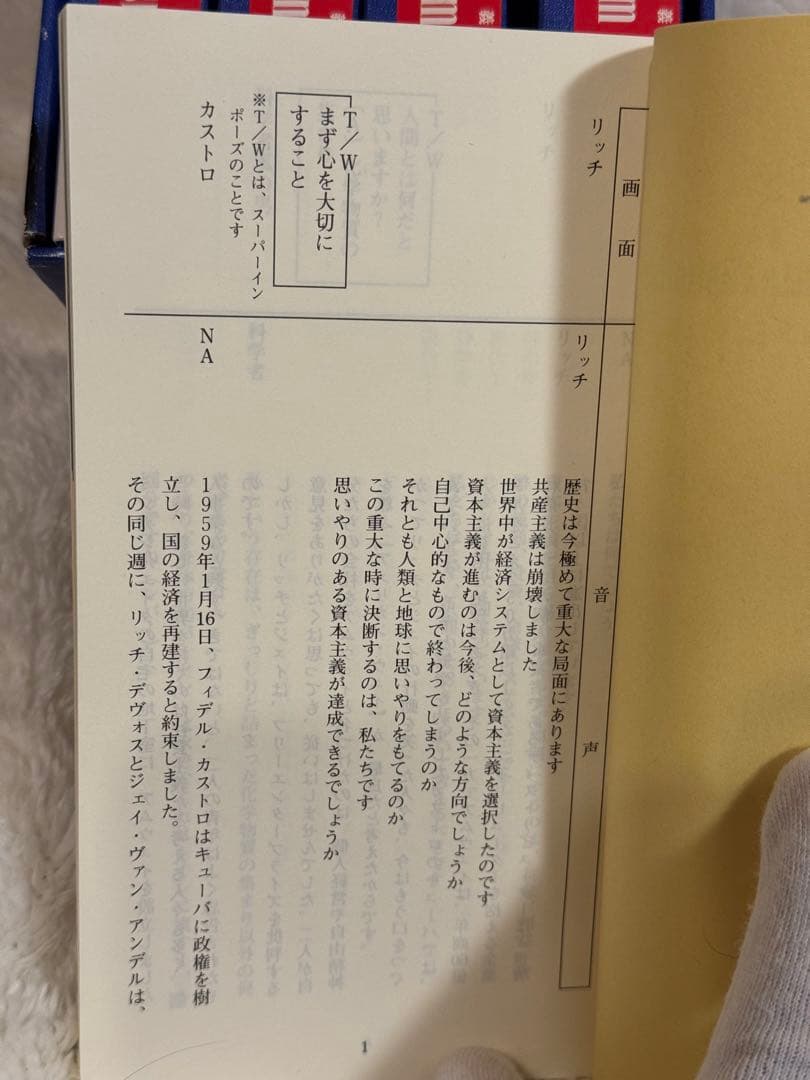 義
m
義
m
義
m
義
m
画面
音声
リッチ
リッチ
歴史は今極めて重大な局面にあります
共産主義は崩壊しました
世界中が経済システムとして資本主義を選択したのです
資本主義が進むのは今後、どのような方向でしょうか
自己中心的なもので終わってしまうのか
それとも人類と地球に思いやりをもてるのか
この重大な時に決断するのは、私たちです
思いやりのある資本主義が達成できるでしょうか
T/W
まず心を大切に
すること
※T/Wとは、スーパーイン
ポーズのことです
カストロ
NA
1959年1月16日、フィデル・カストロはキューバに政権を樹
立し、国の経済を再建すると約束しました。
その同じ週に、リッチ・デヴォスとジェイ・ヴァン・アンデルは、
1